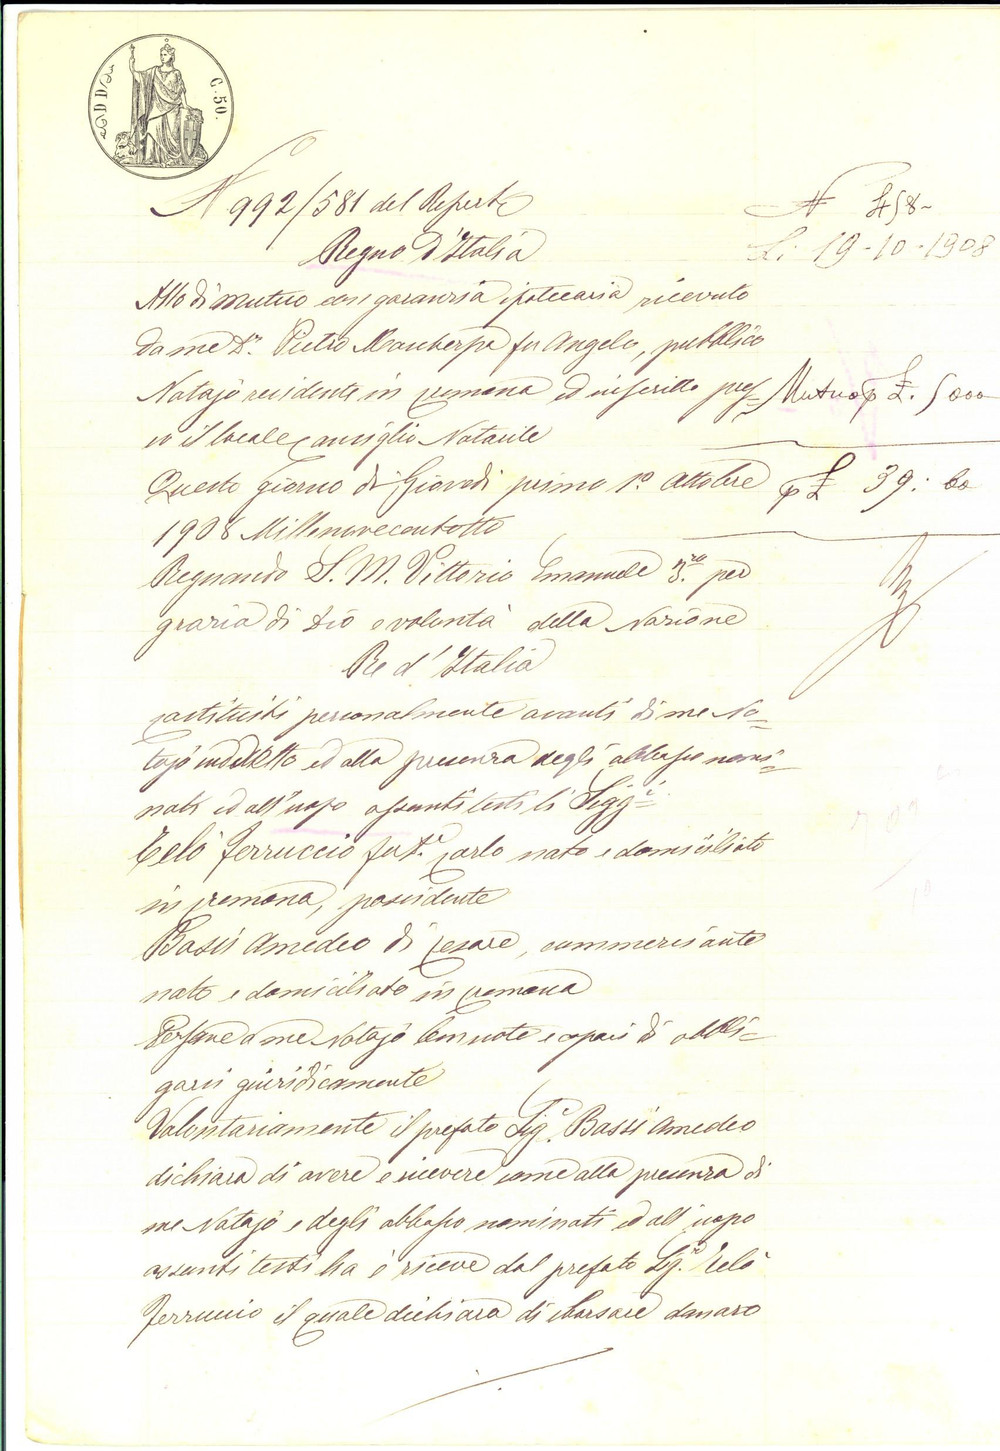 C. 50.
N° 992/581 del Repert°
N° 458-
Li 19-10-1908
Regno d'Italia
Atto di mutuo con garanzia ipotecaria ricevuto
da me Dr. Pietro fu Angelo, pubblico
Notajo residente in Cremona ed inscritto pres=
so il locale Consiglio Notarile
Mutuo £. 5000
Questo giorno di Giovedì primo 1° Ottobre
£ 39: 60
1908 Millenovecentotto
Regnando S. M. Vittorio Emanuele 3.zo per
grazia di Dio e volontà della Nazione
Re d'Italia
Costituiti personalmente avanti di me No=
tajo indetto ed alla presenza degli abbasso nomi=
nati ed all'uopo assunti testi li Sigg.i
Telò Ferruccio fu Carlo nato e domiciliato
in Cremona, possidente
Bassi Amedeo di Cesare, commerciante
nato e domiciliato in Cremona
Persone a me Notajo ben note e capaci di obbli=
garsi giuridicamente
Volontariamente il prefato Sig.r Bassi Amedeo
dichiara di avere e ricevere come alla presenza di
me Notajo e degli abbasso nominati ed all'uopo
assunti testi ha e riceve dal prefato Sig.r Telò
Ferruccio il quale dichiara di sborsare danaro